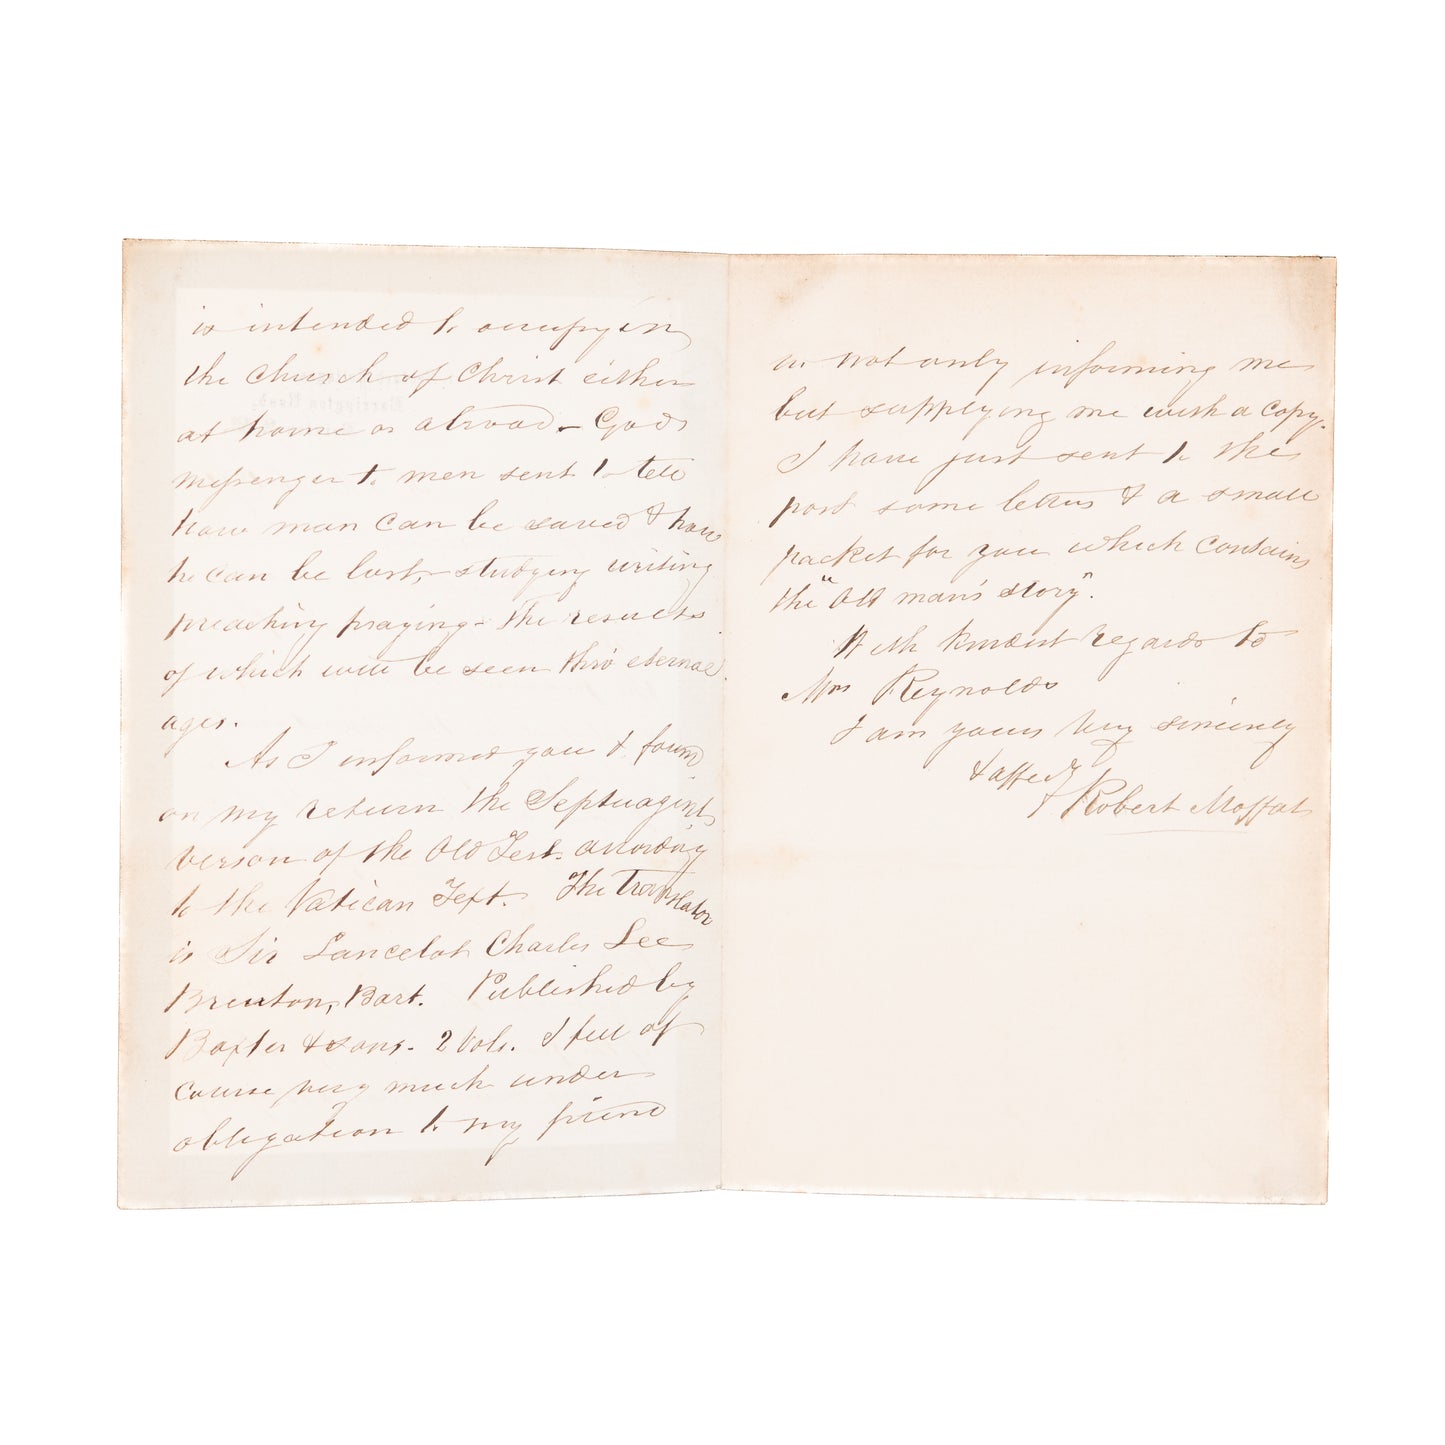 is intended to occupy in
the Church of Christ either
at home or abroad - Gods
messenger to men sent to tell
how man can be saved & how
he can be lost, - studying writing
preaching praying - The results
of which will be seen thro' eternal
ages.
As I informed you I found
on my return the Septuagint
version of the Old Test. according
to the Vatican Text. The Translator
is Sir Lancelot Charles Lee
Brenton, Bart. Published by
Baxter & Sons. 2 Vols. I feel of
course very much under
obligation to my friend
in not only informing me
but supplying me with a copy.
I have just sent to the
post some letters & a small
packet for you which contains
the "Old man's story".
With kindest regards to
Mrs Reynolds
I am yours very sincerely
& affecly
Robert Moffat